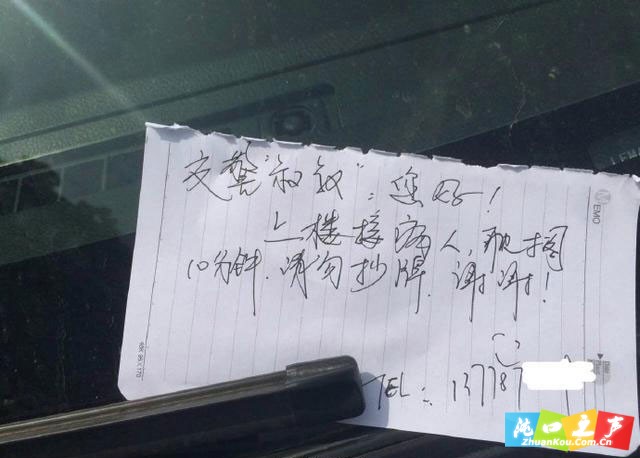 交警"叔叔":您好!
上楼接病人,耽搁
10分钟.请勿抄牌.谢谢!
TEL:
MEMO
沌口之声
ZhuanKou.Com.Cn